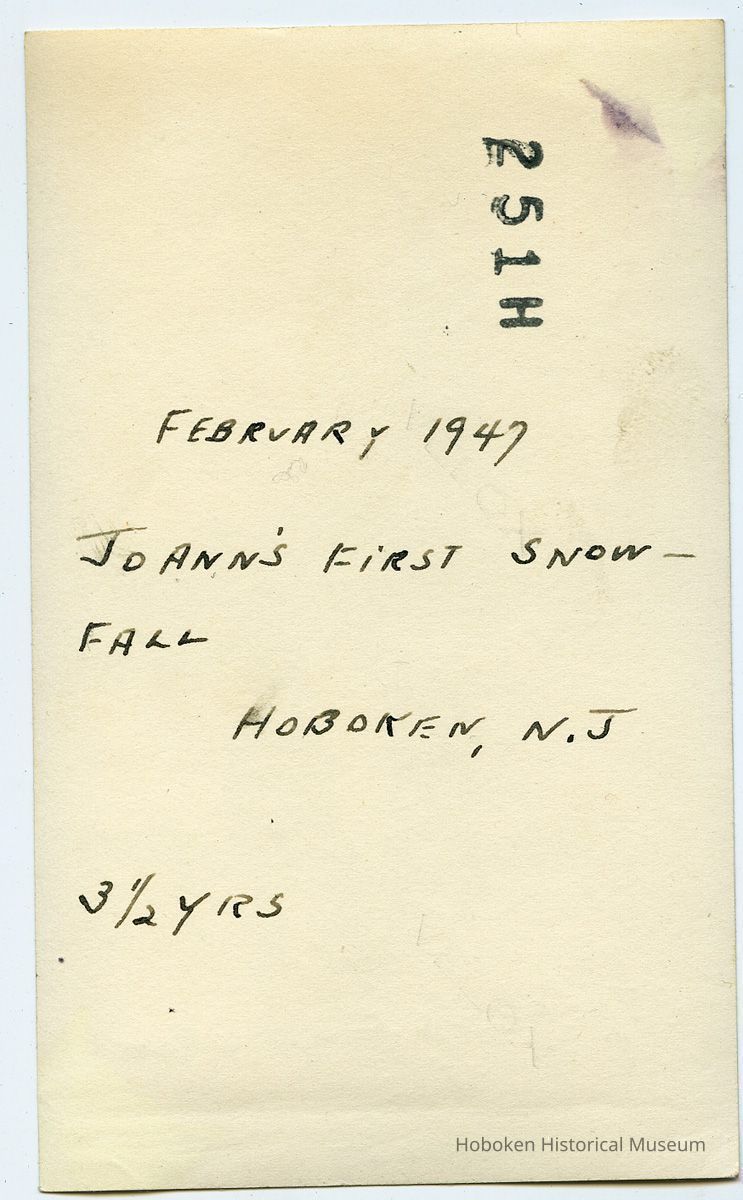 251H
FEBRUARY 1947
JOANN'S FIRST SNOW-
FALL
HOBOKEN, N.J
3 1/2 YRS
Hoboken Historical Museum